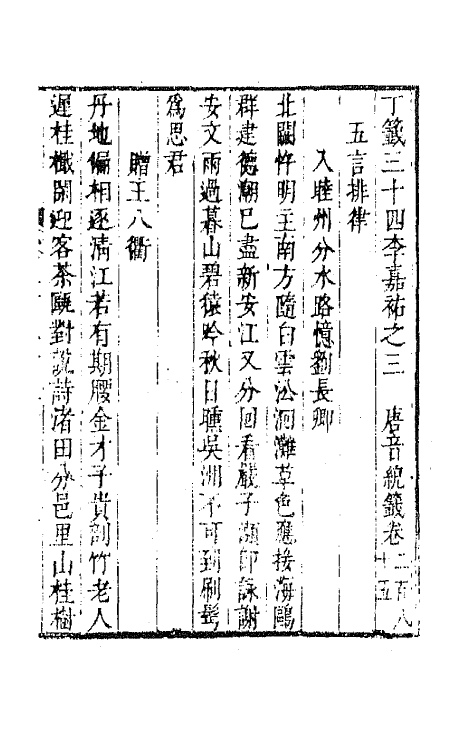 丁籤三十四李嘉祐之三　唐音統籤卷二百八十五
五言排律
入睦州分水路憶劉長卿
北闕忤明主南方隨白雲沿洄灘草色應接海鷗
群建德潮已盡新安江又分回看嚴子瀨即詠謝
安文雨過暮山碧猿吟秋日曛吳洲不可到刷鬢
爲思君
贈王八衢
丹地偏相逐清江若有期腰金才子貴剖竹老人
遲桂檝閑迎客茶甌對說詩渚田分邑里山桂樹